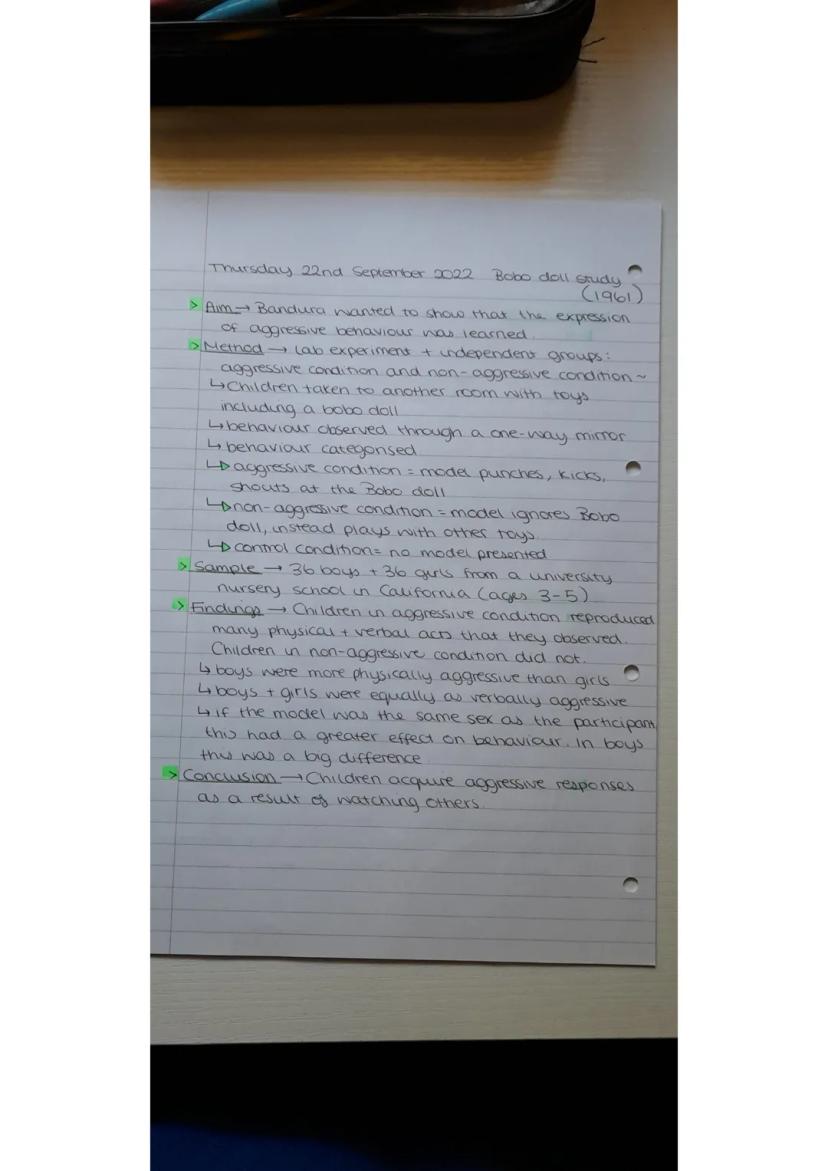 Thursday 22nd September 2022 Bobo doll study
(1961)
> Aim → Bandura wanted to show that the expression
of aggressive behaviour was learned.
> Method → Lab experiment + independent groups:
aggressive condition and non-aggressive condition ~
↳ Children taken to another room with toys
including a bobo doll
↳ behaviour observed through a one-way mirror
↳ behaviour categorised
↳ aggressive condition = model punches, kicks,
shouts at the Bobo doll
↳ non-aggressive condition = model ignores Bobo
doll, instead plays with other toys.
↳ control condition = no model presented
> Sample → 36 boys + 36 girls from a university
nursery school in California (ages 3-5)
> Findings → Children in aggressive condition reproduced
many physical + verbal acts that they observed.
Children in non-aggressive condition did not.
↳ boys were more physically aggressive than girls
↳ boys + girls were equally as verbally aggressive
↳ if the model was the same sex as the participant,
this had a greater effect on behaviour. In boys
this was a big difference
> Conclusion → Children acquire aggressive responses
as a result of watching others.